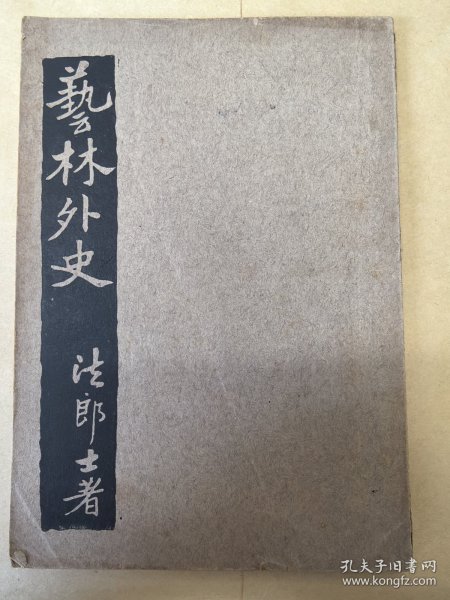 藝林外史
法郎士著
孔夫子旧书网
www.kongfz.com